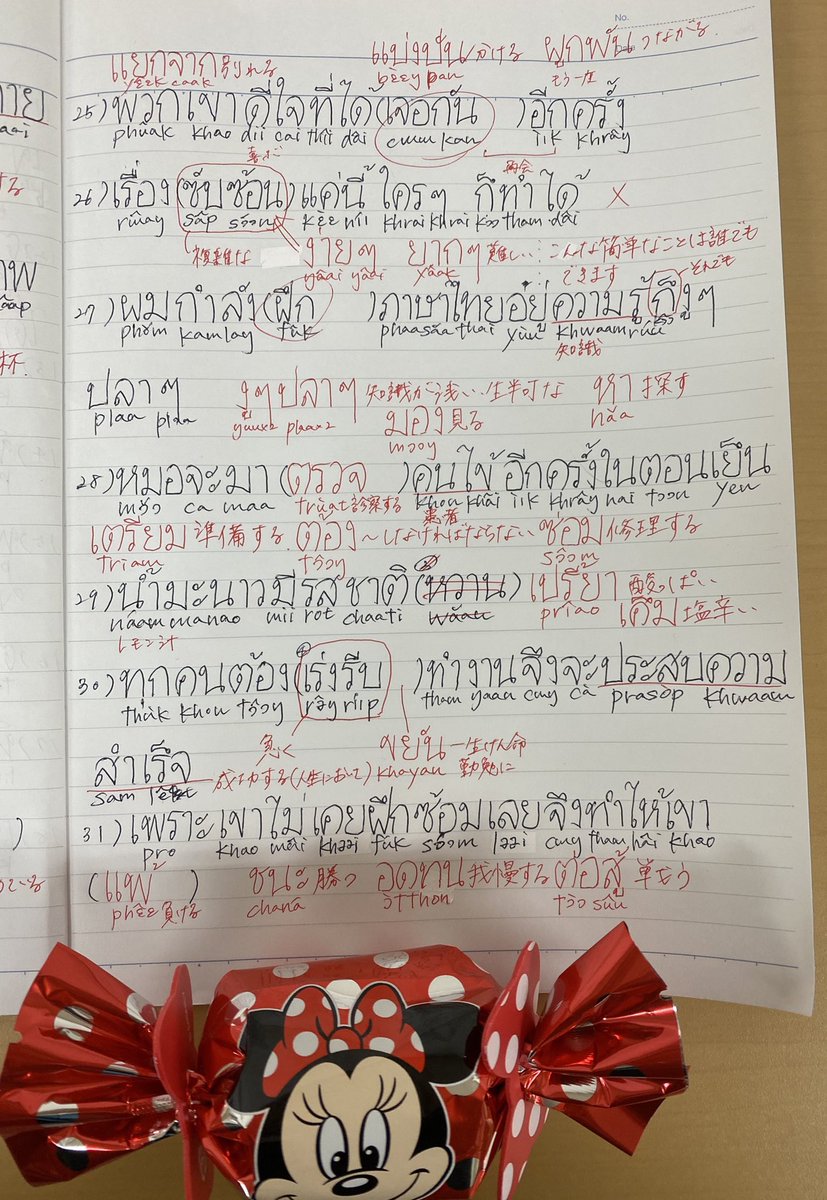 No.
แยกจาก 別れる แบ่งปัน 分ける ผูกพัน つながる
yɛ̂ɛk caak bɛ̀ɛŋ pan もう一度
25) พวกเขาดีใจที่ได้ (เจอกัน ) อีกครั้ง
phûak khao dii cai thîi dâi cəəə kan ìik khráŋ
喜ぶ 再会
26) เรื่อง (ซับซ้อน) แค่นี้ ใครๆ ก็ทำได้ ×
rɯ̂aŋ sáp sɔ́ɔn kɛ̂ɛ níi khrai khrai kɔ̂ɔ tham dâi
複雑な ง่ายๆ ยากๆ 難しい こんな簡単なことは誰でも
ŋâai ŋâai yâak できます それでも
27) ผมกำลัง (ฝึก ) ภาษาไทยอยู่ ความรู้ก็งูๆ
phǒm kamlaŋ fɯ̀k phaasǎa thai yùu khwaamrúu
知識
ปลาๆ งูๆปลาๆ 知識が浅い、生半可な หา 探す
plaa plaa ŋuu×2 plaa×2 มอง 見る hǎa
mɔɔŋ
28) หมอจะมา (ตรวจ ) คนไข้ อีกครั้งในตอนเย็น
mɔ̌ɔ ca maa trùat 診察する khon khâi ìik khráŋ nai tɔɔn yen
患者
เตรียม 準備する ต้อง 〜しなければならない ซ่อม 修理する
triam tɔ̂ɔŋ sɔ̂ɔm
29) น้ำมะนาวมีรสชาติ (หวาน) เปรี้ยว 酸っぱい
náam manao mii rót chaati wǎan prîao เค็ม 塩辛い
レモン汁
30) ทุกคนต้อง (เร่งรีบ ) ทำงานจึงจะประสบความ
thúk khon tɔ̂ɔŋ rêŋ rîip tham ŋaan cɯŋ cà prasòp khwaam
急ぐ ขยัน 一生けん命
สำเร็จ 成功する(人生において) khayǎn 勤勉に
sam lèt
31) เพราะเขาไม่เคยฝึกซ้อมเลยจึงทำให้เขา
prɔ́ khao mâi khəəi fɯ̀k sɔ́ɔm ləəi cɯŋ tham hâi khao
(แพ้ ) ชนะ 勝つ อดทน 我慢する ต่อสู้ 戦う
phɛ́ɛ 負ける chaná òtthon tɔ̀ɔ sûu